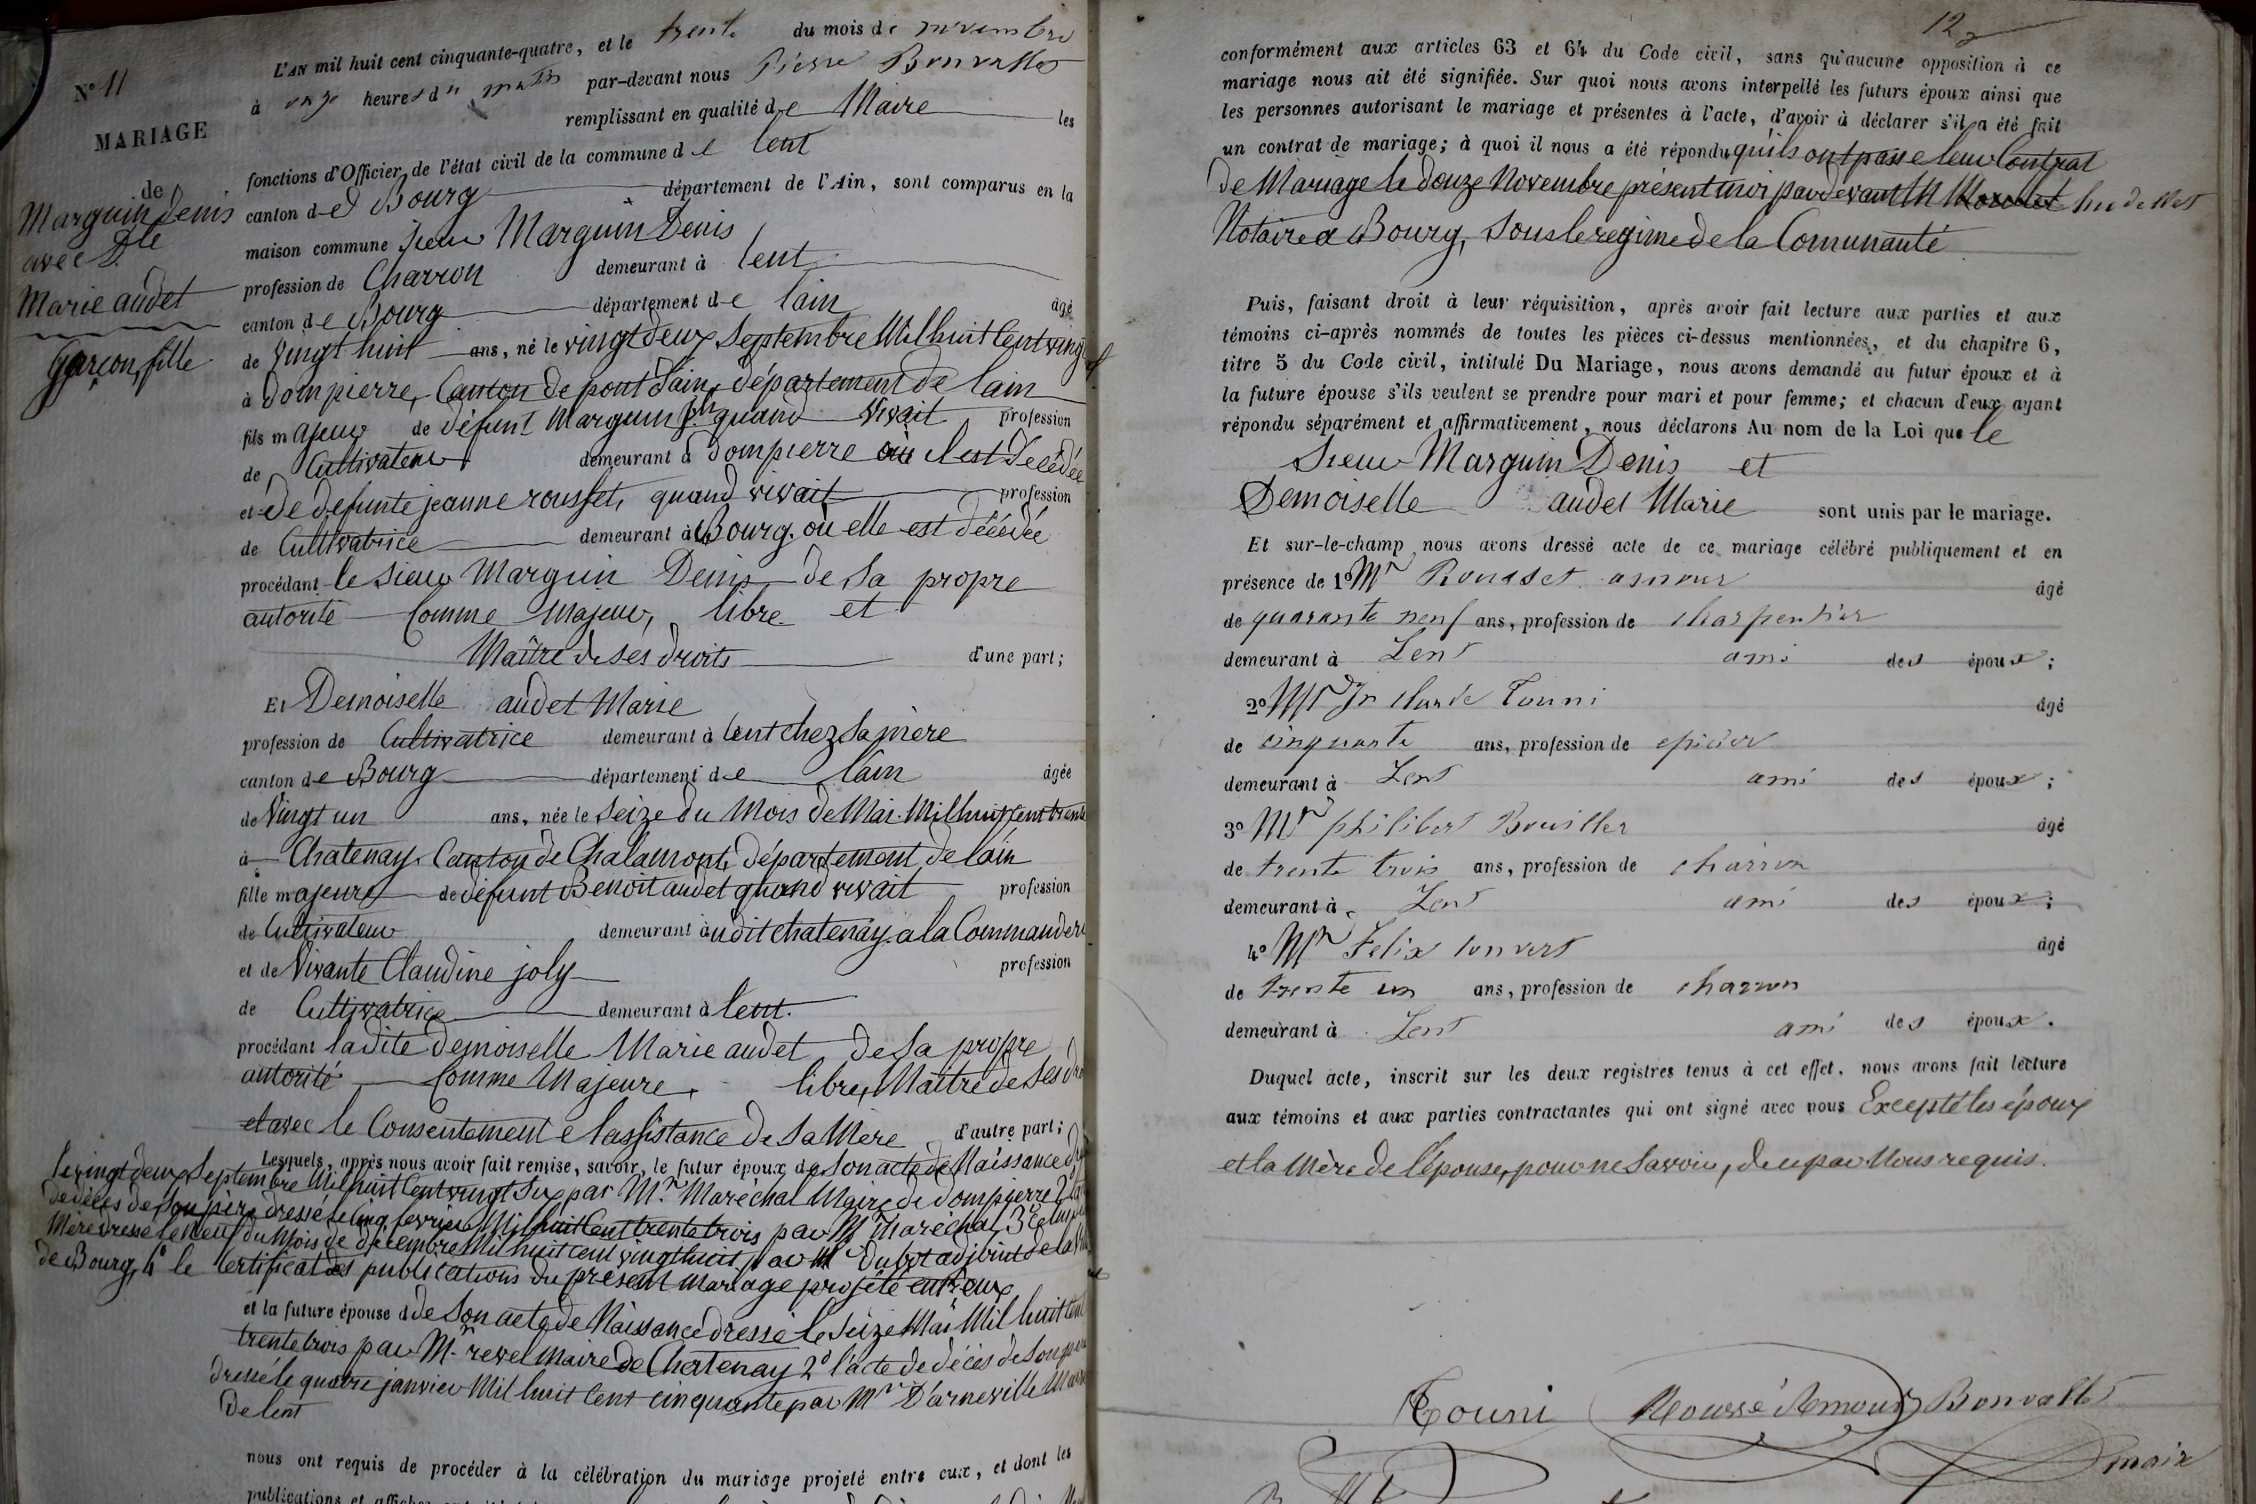 N° 11
MARIAGE
de
Marguin Denis
avec Dlle
Marie audet
garçon, fille
L'AN mil huit cent cinquante-quatre, et le trente du mois de novembre
à onze heures du matin par-devant nous Pierre Bonvallet
remplissant en qualité de Maire les
fonctions d'Officier de l'état civil de la commune de lent
canton de Bourg département de l'Ain, sont comparus en la
maison commune sieur Marguin Denis
profession de Charron demeurant à lent
canton de Bourg département de lain âgé
de vingt huit ans, né le vingt deux Septembre Mil huit Cent vingt
à dompierre, Canton de pont dain, département de lain
fils majeur de défunt Marguin quand vivait profession
de Cultivateur demeurant à dompierre où il est décédée
et de défunte jeanne rousset, quand vivait profession
de Cultivatrice demeurant à Bourg, où elle est décédée
procédant le Sieur Marguin Denis de sa propre
autorité Comme Majeur, libre et
Maître de ses droits d'une part;
Et Demoiselle audet Marie
profession de Cultivatrice demeurant à lent chez sa mère
canton de Bourg département de lain âgée
de vingt un ans, née le seize du Mois de Mai Mil huit cent trente
à Chatenay Canton de Chalamont, département de lain
fille majeure de défunt Benoit audet quand vivait profession
de Cultivateur demeurant audit chatenay a la Commander
et de vivante Claudine joly profession
de Cultivatrice demeurant à lent.
procédant ladite demoiselle Marie audet de sa propre
autorité Comme Majeure, libre, Maître de ses
et avec le Consentement e lassistance de sa Mère d'autre part;
Lesquels, après nous avoir fait remise, savoir, le futur époux de son acte de Naissance
le vingt deux Septembre Mil huit Cent vingt six par Mr Maréchal Maire de dompierre 2°
de décès de son père dressé le cinq fevrier Mil huit Cent trente trois par Mr Maréchal 3°
Mère dressé le neuf du Mois de décembre Mil huit cent vingt huit par Mr adjoint de la
de Bourg, 4° le Certificat des publications du présent mariage projeté entre eux
et la future épouse de son acte de Naissance dressé le seize Mai Mil huit cent
trente trois par Mr revel maire de Chatenay 2° l'acte de décès de son père
dressé le quatre janvier Mil huit Cent cinquante par Mr D'arneville Maire
de lent
nous ont requis de procéder à la célébration du mariage projeté entre eux, et dont les
publications et affiches
12
conformément aux articles 63 et 64 du Code civil, sans qu'aucune opposition à ce
mariage nous ait été signifiée. Sur quoi nous avons interpellé les futurs époux ainsi que
les personnes autorisant le mariage et présentes à l'acte, d'avoir à déclarer s'il a été fait
un contrat de mariage; à quoi il nous a été répondu qu'ils ont passé leur Contrat
de Mariage le douze Novembre présent mois par devant M
Notaire a Bourg, sous le regime de la Comunauté
Puis, faisant droit à leur réquisition, après avoir fait lecture aux parties et aux
témoins ci-après nommés de toutes les pièces ci-dessus mentionnées, et du chapitre 6,
titre 5 du Code civil, intitulé Du Mariage, nous avons demandé au futur époux et à
la future épouse s'ils veulent se prendre pour mari et pour femme; et chacun d'eux ayant
répondu séparément et affirmativement, nous déclarons Au nom de la Loi que le
Sieur Marguin Denis et
Demoiselle audet Marie sont unis par le mariage.
Et sur-le-champ nous avons dressé acte de ce mariage célébré publiquement et en
présence de 1° Mr Rousset amour âgé
de quarante neuf ans, profession de charpentier
demeurant à Lent ami des époux;
2° Mr Jn Claude Touni âgé
de cinquante ans, profession de epicier
demeurant à Lent ami des époux;
3° Mr philibert Bouiller âgé
de trente trois ans, profession de charron
demeurant à Lent ami des époux;
4° Mr Felix convert âgé
de trente un ans, profession de charron
demeurant à Lent ami des époux.
Duquel acte, inscrit sur les deux registres tenus à cet effet, nous avons fait lecture
aux témoins et aux parties contractantes qui ont signé avec nous Excepté les époux
et la Mère de l'épouse, pour ne savoir, de ce par Nous requis.
Touni Roussé Amour Bonvallet
maire